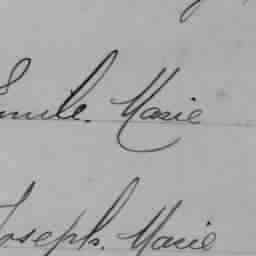 Emile. Marie
Joseph. Marie